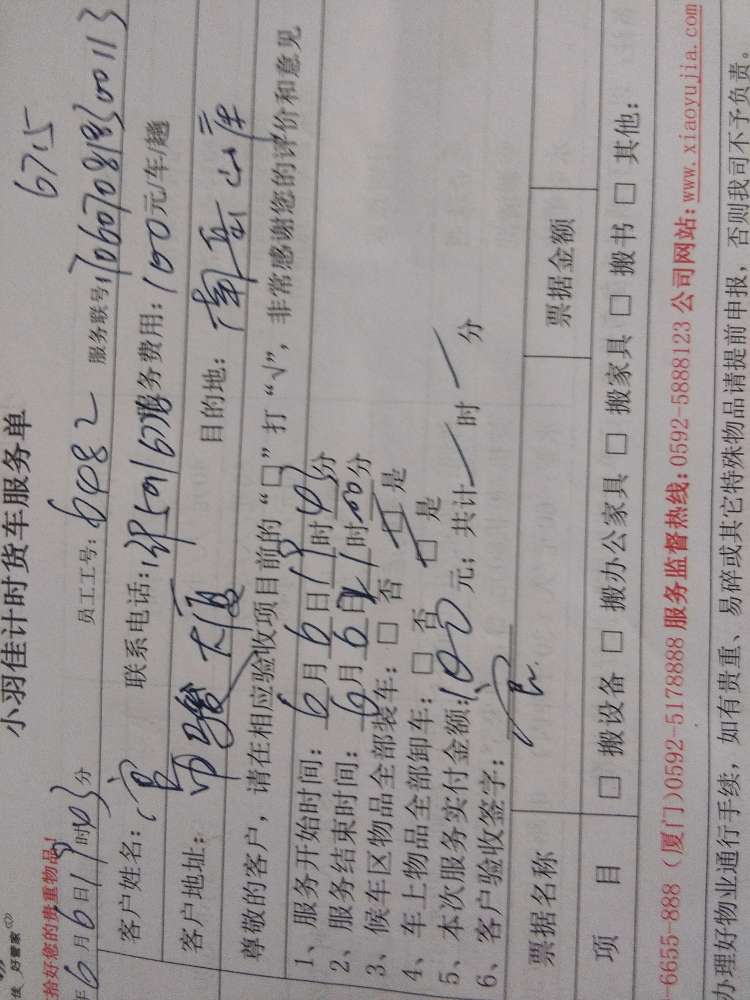 小羽佳计时货车服务单
6715
佳 好管家
拾好您的贵重物品!
年6月6日19时03分 员工工号:6482 服务联号:
客户姓名: 联系电话: 服务费用:100元/车/趟
客户地址: 帝骏大厦 目的地: 南岳山庄
尊敬的客户，请在相应验收项目前的“□”打“√”，非常感谢您的评价和意见
1、服务开始时间: 6月6日19时03分
2、服务结束时间: 6月6日21时00分
3、候车区物品全部装车: □ 否 □ 是
4、车上物品全部卸车: □ 否 □ 是
5、本次服务实付金额:100元; 共计 时 分
6、客户验收签字:
票据名称 票据金额
项 目 □ 搬设备 □ 搬办公家具 □ 搬家具 □ 搬书 □ 其他:
6655-888 (厦门)0592-5178888 服务监督热线: 0592-5888123 公司网站: www.xiaoyujia.com
办理好物业通行手续，如有贵重、易碎或其它特殊物品请提前申报，否则我司不予负责。